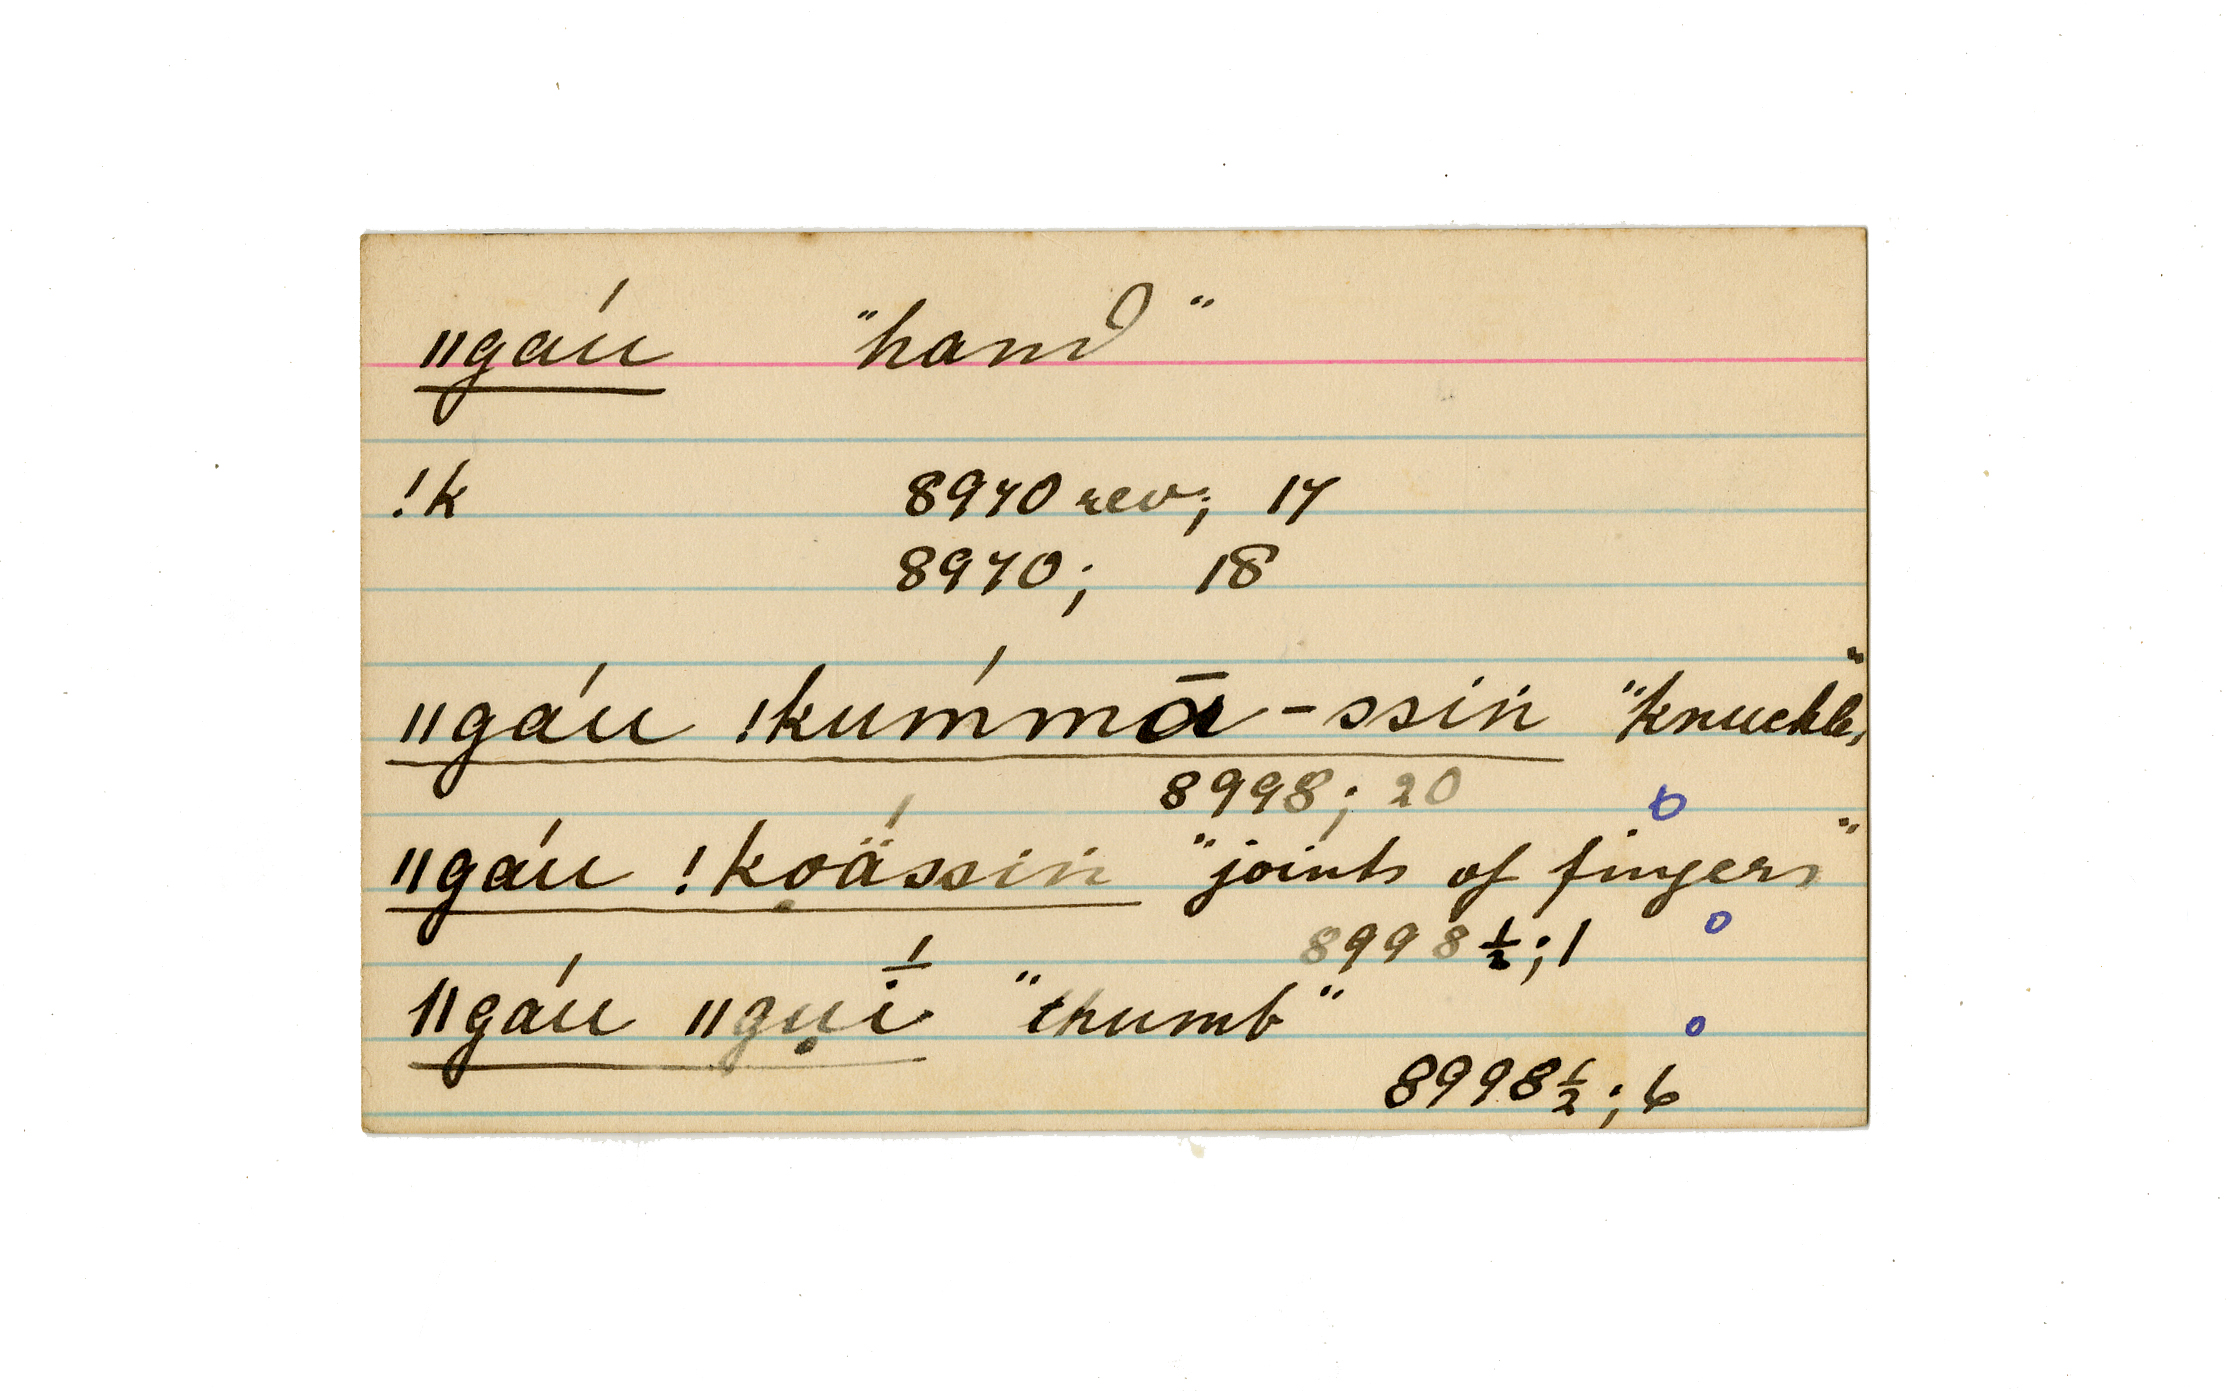 ǁgáu "hand"
!k 8970 rev; 17
8970; 18
ǁgáu !kúmmā-ssin "knuckle,"
8998; 20
ǁgáu !kọä́ssin "joints of fingers"
8998½; 1
ǁgáu ǁgụī́ "thumb"
8998½; 6